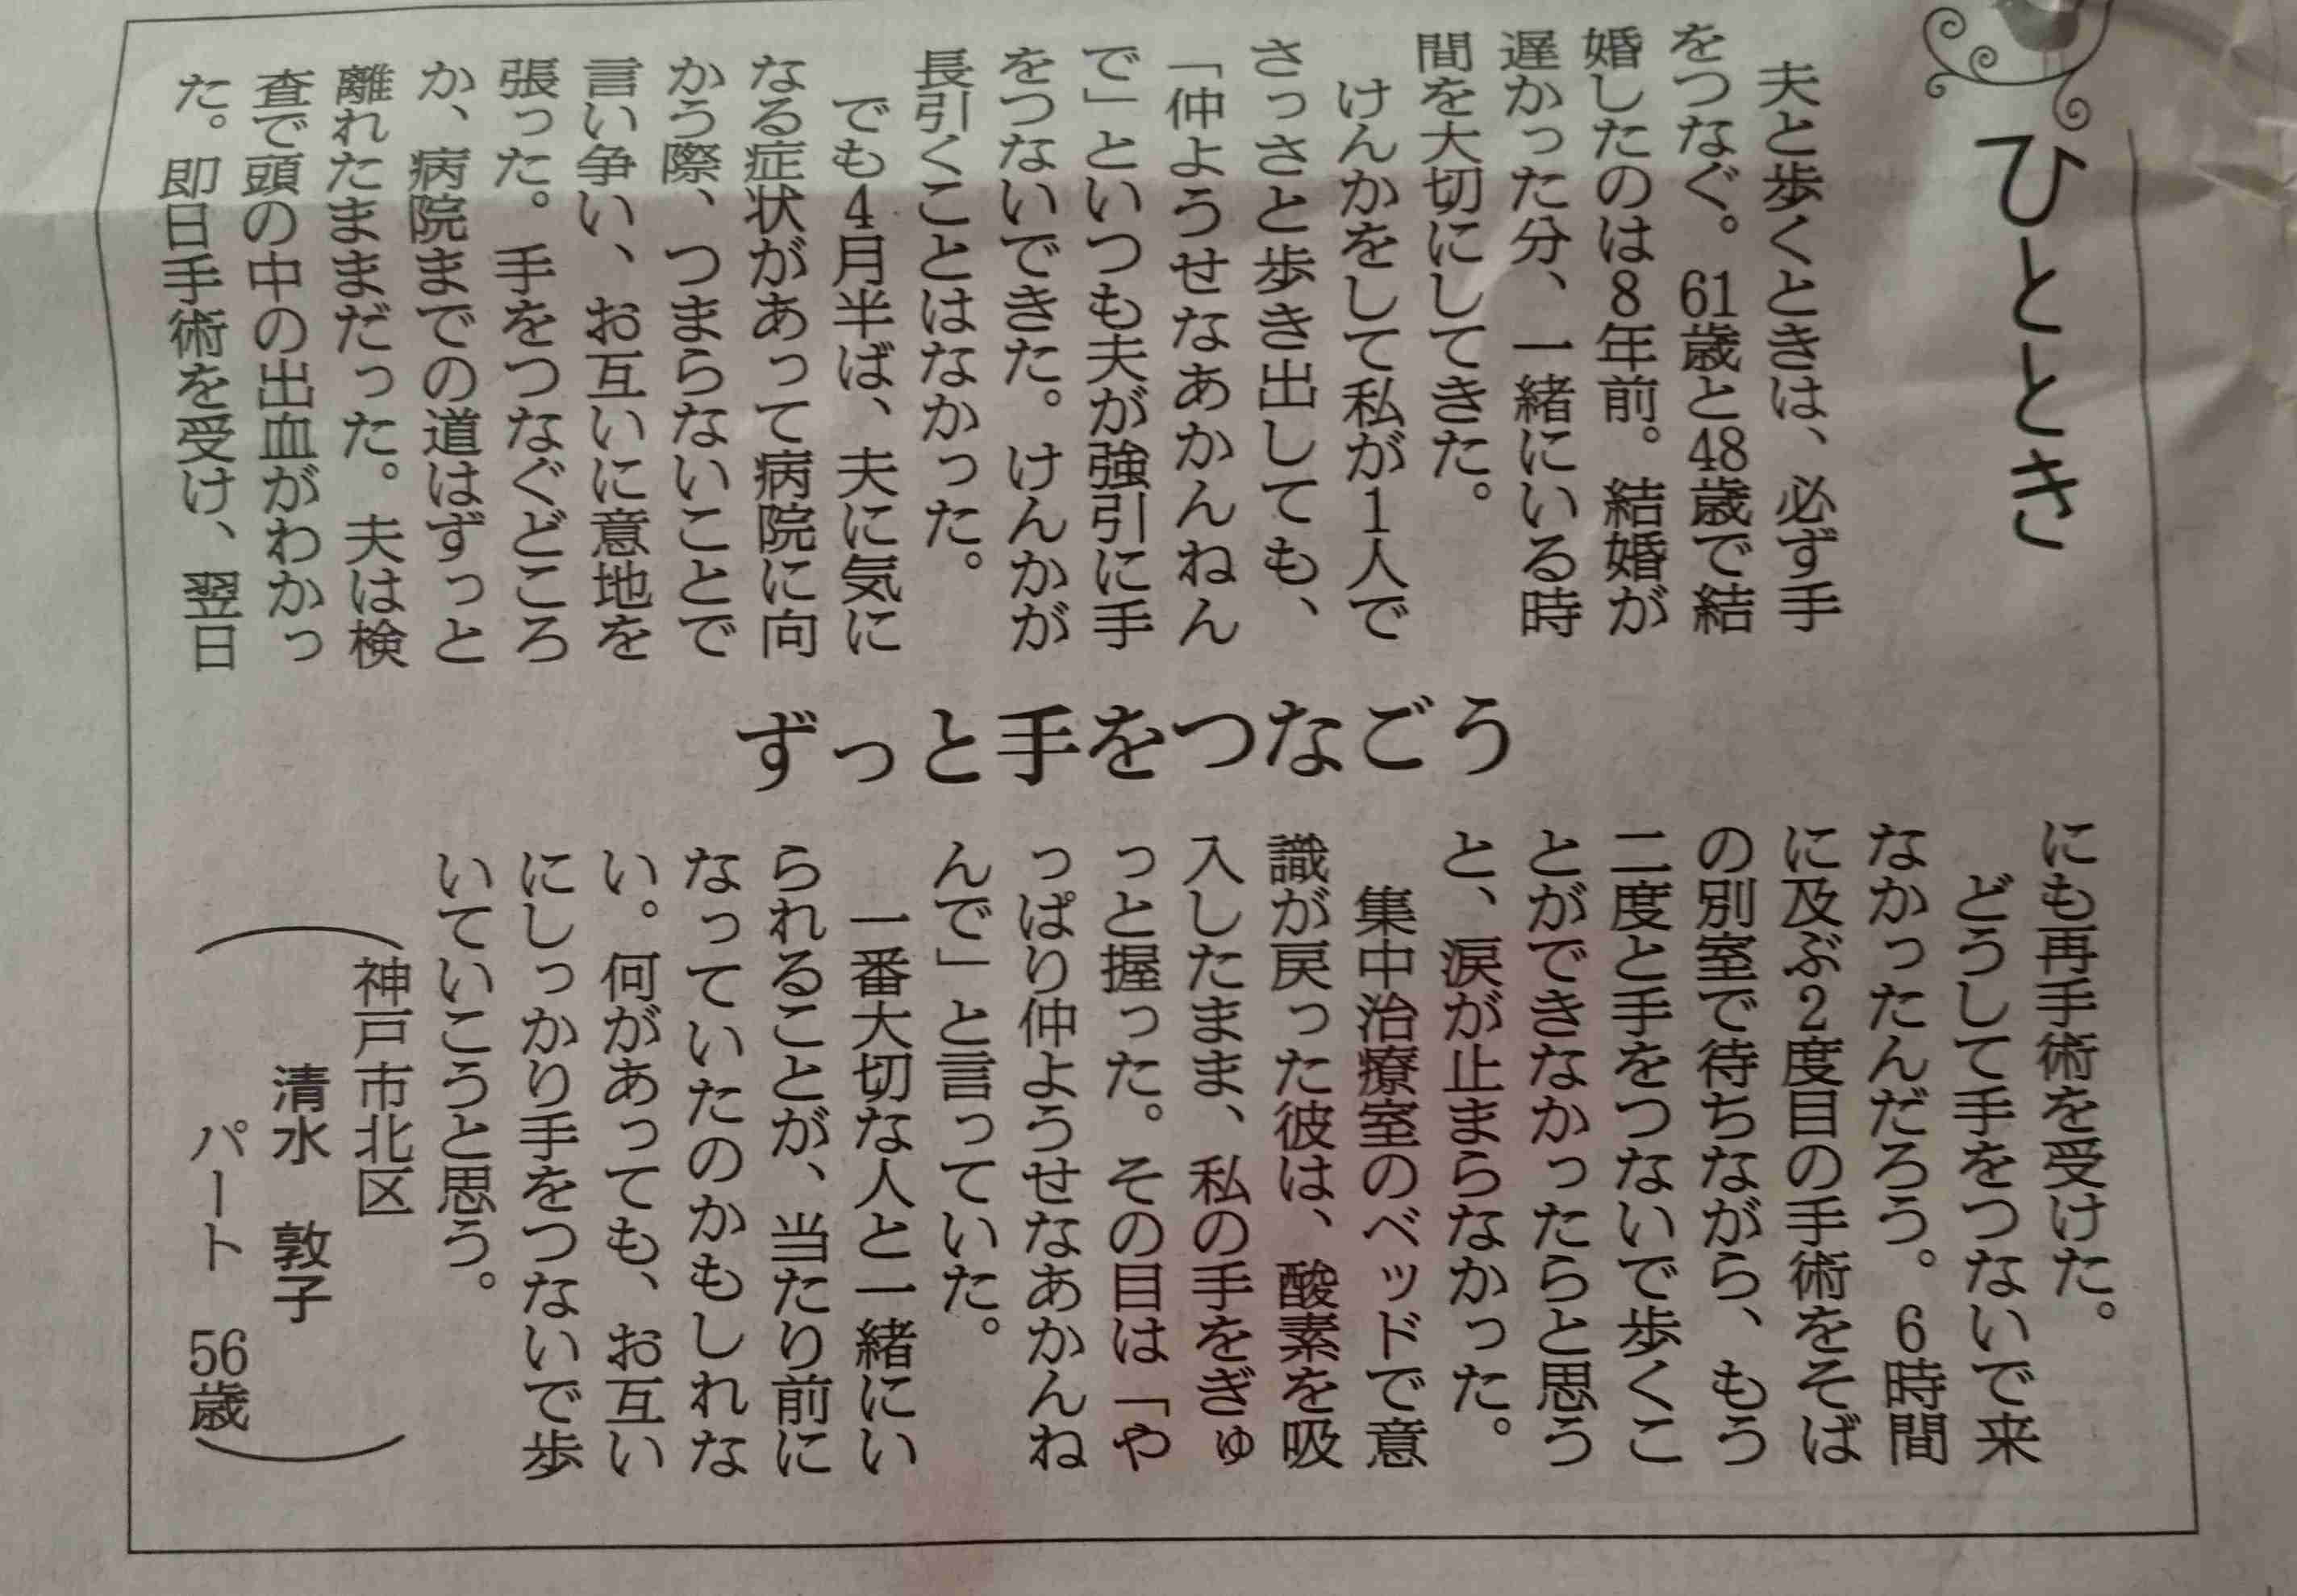 ひととき
夫と歩くときは、必ず手
をつなぐ。61歳と48歳で結
婚したのは8年前。結婚が
遅かった分、一緒にいる時
間を大切にしてきた。
けんかをして私が1人で
さっさと歩き出しても、
「仲ようせなあかんねん
で」といつも夫が強引に手
をつないできた。けんかが
長引くことはなかった。
でも4月半ば、夫に気に
なる症状があって病院に向
かう際、つまらないことで
言い争い、お互いに意地を
張った。手をつなぐどころ
か、病院までの道はずっと
離れたままだった。夫は検
査で頭の中の出血がわかっ
た。即日手術を受け、翌日
ずっと手をつなごう
にも再手術を受けた。
どうして手をつないで来
なかったんだろう。6時間
に及ぶ2度目の手術をそば
の別室で待ちながら、もう
二度と手をつないで歩くこ
とができなかったらと思う
と、涙が止まらなかった。
集中治療室のベッドで意
識が戻った彼は、酸素を吸
入したまま、私の手をぎゅ
っと握った。その目は「や
っぱり仲ようせなあかんね
んで」と言っていた。
一番大切な人と一緒にい
られることが、当たり前に
なっていたのかもしれな
い。何があっても、お互い
にしっかり手をつないで歩
いていこうと思う。
（神戸市北区
清水 敦子
パート 56歳）